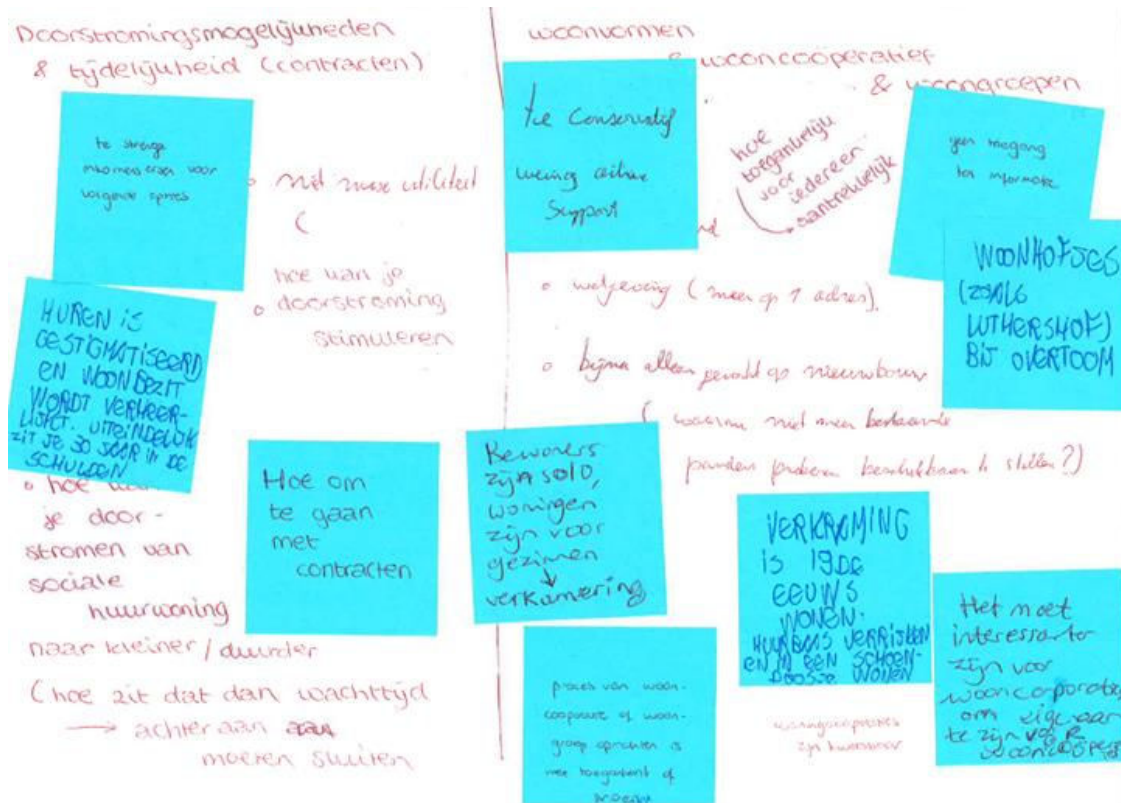 Doorstromingsmogelijkheden
& tijdelijkheid (contracten)
te strenge
inkomenseisen voor
volgende
o niet meer utiliteit
(
hoe kan je
o doorstroming
stimuleren
HUREN IS
GESTIGMATISEERD
EN WOONBEZIT
WORDT VERHEER-
LIJKT. UITEINDELIJK
ZIT JE 30 JAAR IN DE
SCHULDEN
o hoe
je door-
stromen van
sociale
huurwoning
naar kleiner / duurder
(hoe zit dat dan wachttijd
→ achter aan
moeten sluiten
Hoe om
te gaan
met
contracten
woonvormen
& wooncoöperatief
& woongroepen
te conservatief
weinig active
support
hoe
toegankelijk
voor
iedereen
aantrekkelijk
geen toegang
tot informatie
WOONHOFJES
(ZOALS
LUTHERSHOF)
BIJ OVERTOOM
o wetgeving (meer op 1 adres).
o bijna alleen gericht op nieuwbouw
(waarom niet meer bestaande
panden proberen beschikbaar te stellen?)
Bewoners
zijn solo,
woningen
zijn voor
gezinnen
↓
verkamering
VERKAMING
IS 19DE
EEUWS
WONEN.
HUURBAAS VERRIJKEN
EN IN EEN SCHOEN-
DOOSJE WONEN
Het moet
interessanter
zijn voor
wooncorporaties
om eigenaar
te zijn voor
proces van woon-
coöperatie of woon-
groep oprichten is
niet toegankelijk of
zijn